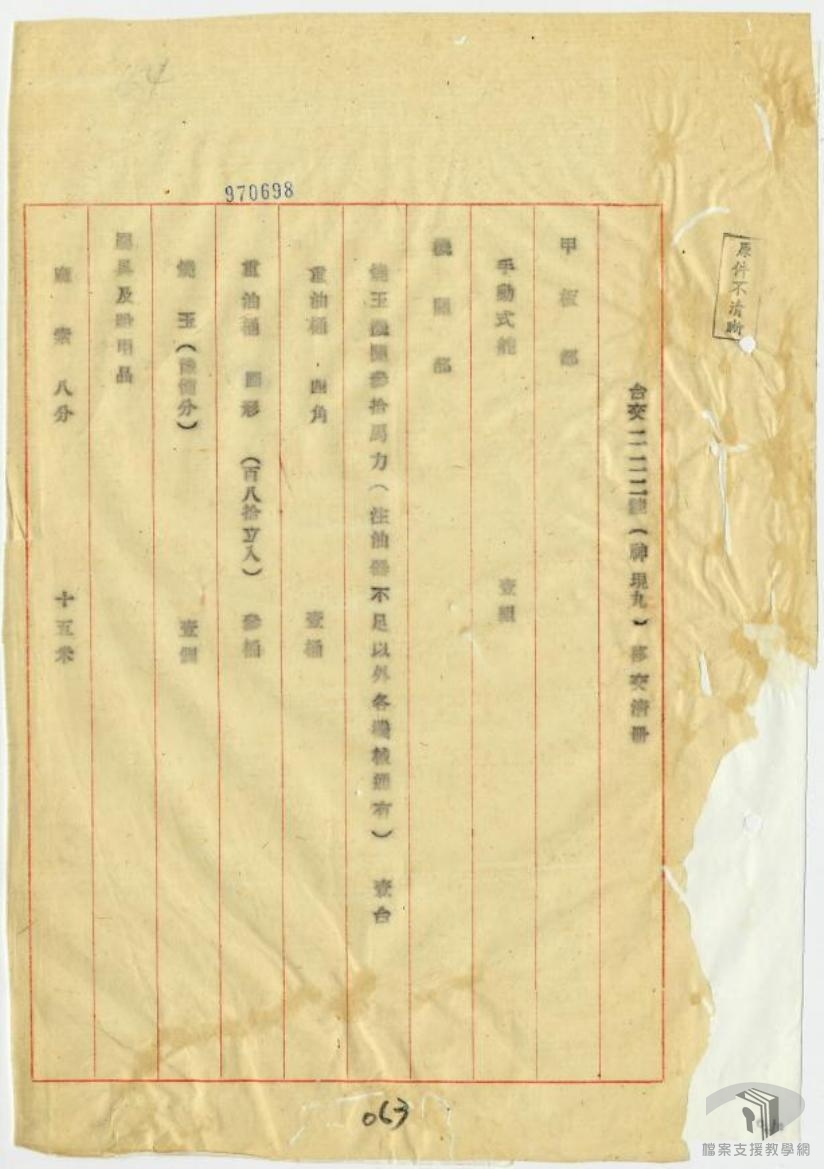 970698
原件不清晰
台交一二二號(神現丸)移交清冊
甲板部
手動式 壹組
機關部
燒玉機關參拾馬力(注油器不足以外各機械通有) 壹台
重油桶 四角 壹桶
重油桶 圓形 (百八拾立入) 參桶
燒玉(預備分) 壹個
屬具及 用品
麻索八分 十五米
063
檔案支援教學網